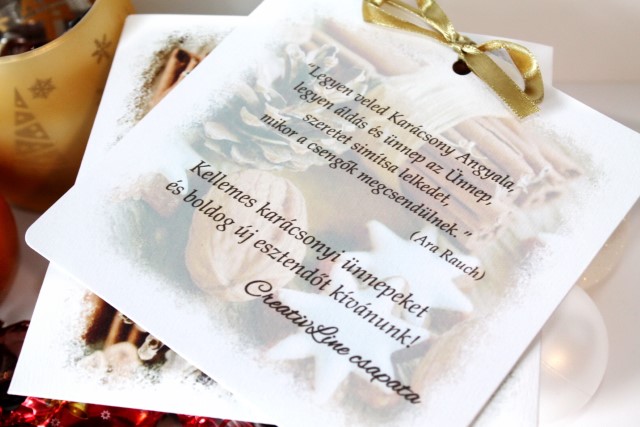 "Legyen veled Karácsony Angyala,
legyen áldás és ünnep az Ünnep,
szeretet simítsa lelkedet,
mikor a csengők megcsendülnek."
(Ara Rauch)
Kellemes karácsonyi ünnepeket
és boldog új esztendőt kívánunk!
CreativLine csapata